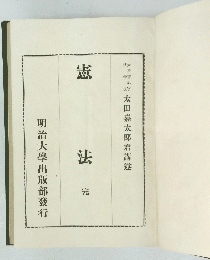 太田嘉太郎君講述
憲法 完
明治大學出版部發行